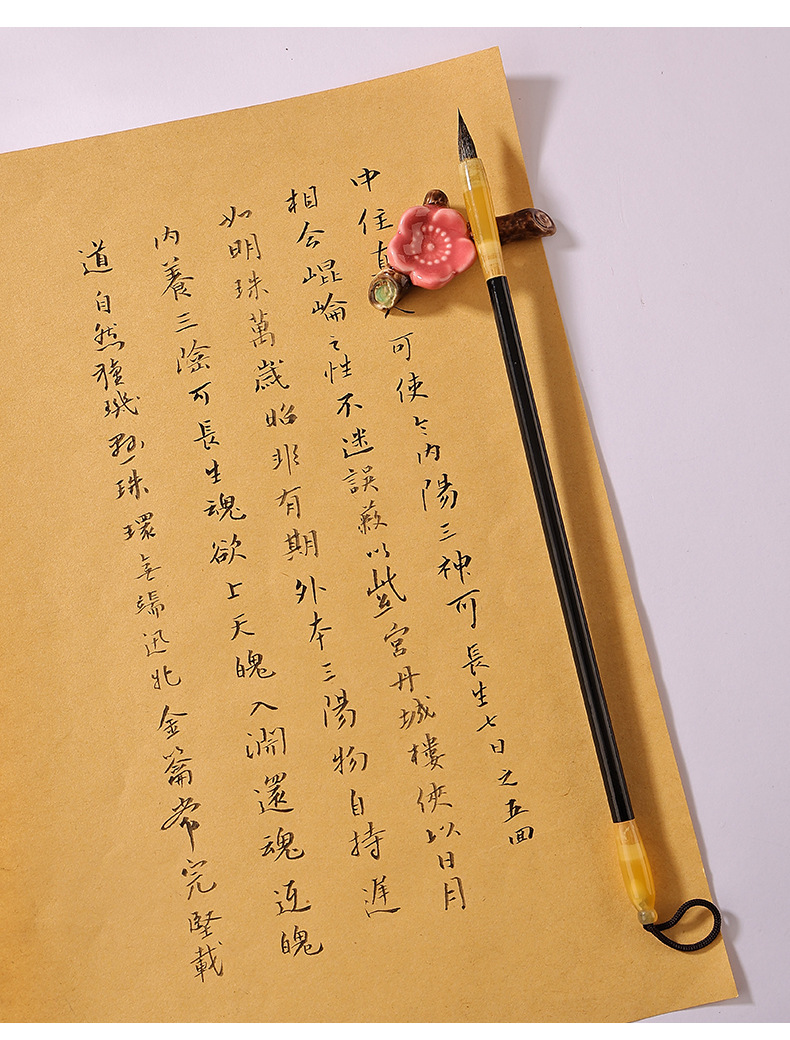 中住真人可使令內陽三神可長生七日之五回
相会崐崘之性不迷誤蔽以紫宮丹城樓俠以日月
如明珠萬歲昭非有期外本三陽物自持遲
內養三陰可長生魂欲上天魄入淵還魂连魄
道自然猶璣珠環無端迅兆金籥常完堅載